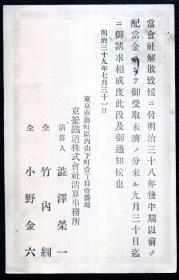 當會社解散致候ニ付明治三十八年後半期以前ノ
配當金ニシテ御受取未濟ノ分來ル九月三十日迄
ニ御請求相成度此段及御通知候也
明治三十九年七月三十一日
東京市麹町區內山下町壹丁目壹番地
京釜鐵道株式會社清算事務所
清算人 澁澤榮一
仝 竹內綱
仝 小野金六